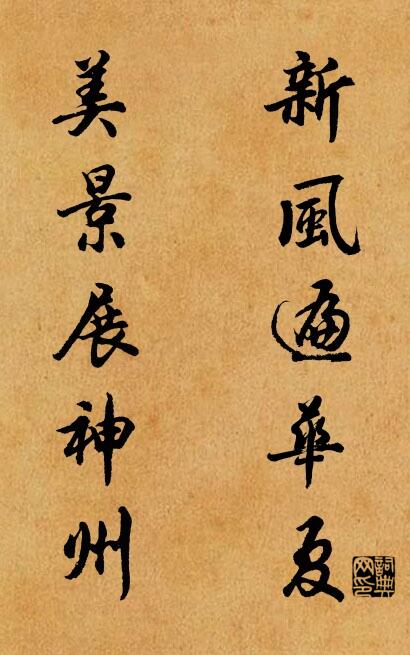 新風遍華夏
美景展神州
詞典網印